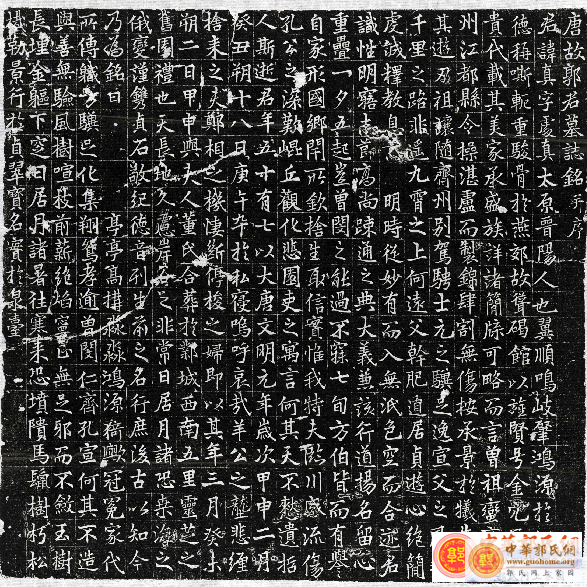 唐故郭君墓誌銘并序
君諱真字處真太原晉陽人也翼順鳴岐肇鴻源於
德稱嘶軛重駿骨於燕郊故聳碣館以旌賢号金
貴代載其美家承盛族詳諸簡牒可略而言曾祖
州江都縣令操湛盧而製錦肆割無傷按承景於犧
其遊刃祖讓隨齊州別駕騁士元之驥之逸宣父之
千里之路非遥九霄之上何遠父幹肥遁居貞遊心絶簡
虔誠釋教息 明時從妙有而入無泯色空而合迹君
識性明窹志節高尚疎通之典大義兼該行道揚名留心
重疊一夕五起豈曾閔之能過不寐七旬方伯皆而有舉
自家形國鄉閈所欽捨生取信賓惟我特夫川感流傷
孔公之深歎崐丘觀化悲園吏之寓言何其天不憗遺指
人斯逝君年五十有七以大唐文明元年歲次甲申二月
癸丑朔十八日庚午卒於私寢嗚呼哀哉羊公之悲纏
捨耒之夫鄭相之機悽斷停梭之婦即以其年三月癸未
朔二日甲申與夫人董氏合葬於鄴城西南五里靈芝之
舊園禮也天長地久慮岸谷之非常日居月諸恐桑海之
俄變謹鐫貞石敬紀德音列生前之名行庶後古以知今
乃為銘曰 亭亭高搆淼淼鴻源猗歟冠冕家代
所傳驥巴化集翔鸞孝逾曾閔仁齊孔宣何其不造
與善無驗風樹喧投前薪絶焰無邪而不斂玉樹
長埋金軀下窆日居月諸暑往寒來恐墳隤馬鬛樹朽松
勒景行於貞翠寶名實於泉臺
中華郭氏網
www.guohome.org
郭氏网上家园